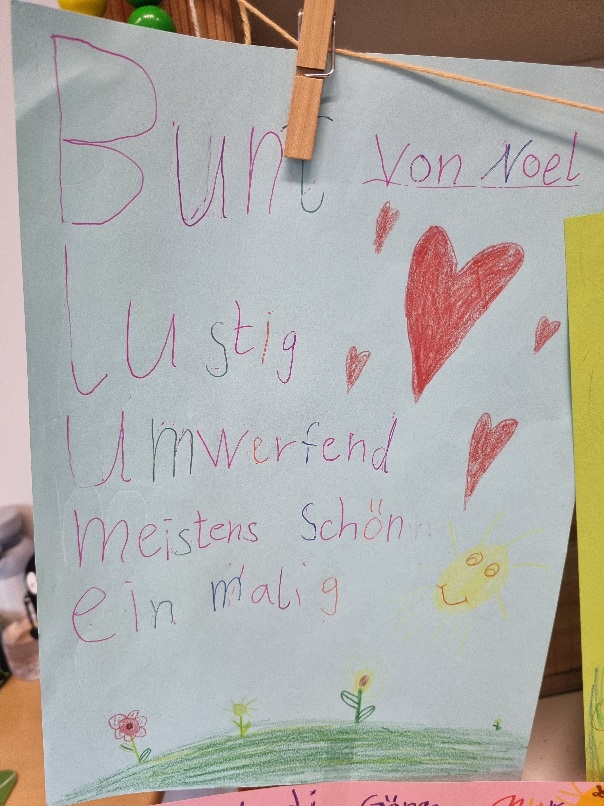 Bunt von Noel
Lustig
Umwerfend
meistens Schön
ein malig